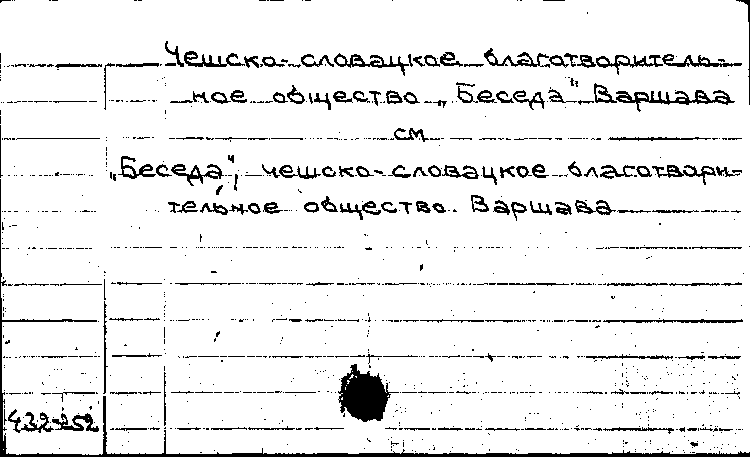 Чешско-словацкое благотворитель-
ное общество „Беседа" Варшава
см
„Беседа", чешско-словацкое благотвори-
тельное общество. Варшава
432-252